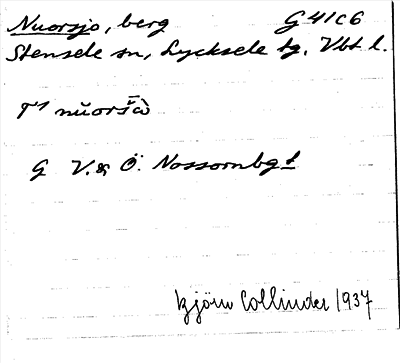 Nuorsjo, berg G 41 c 6
Stensele sn, Lycksele tg. Vbt l.
T1 nŭorš̄ɑ̀
G V. & Ö. Nossornbgt
Björn Collinder 1937